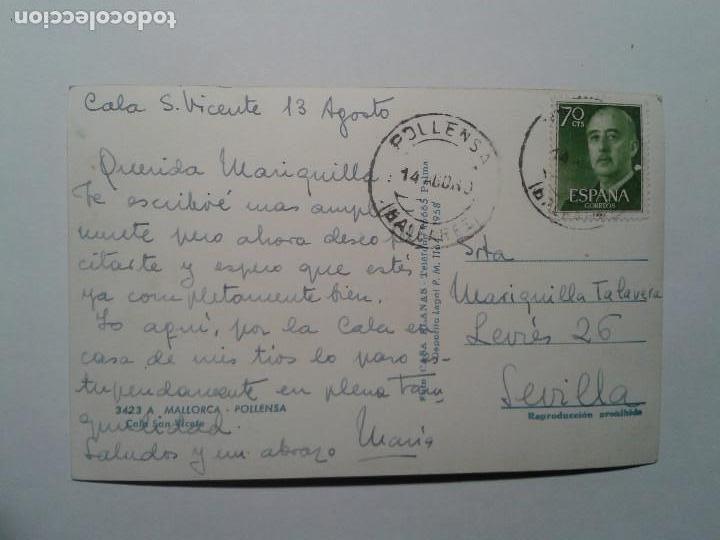 todocoleccion.net
Cala S. Vicente 13 Agosto
Querida Mariquilla
Te escribiré mas ampl
mente pero ahora deseo
citarte y espero que estés
ya completamente bien.
Yo aquí, por la Cala en
casa de mis tios lo paso es-
tupendamente en plena Tran
quilidad.
Saludos y un abrazo María
3423 A MALLORCA - POLLENSA
Cala San Vicente
Foto CASA PLANAS - Palma
Depósito Legal P. M. 1958
POLLENSA
14 AGO
(BALEARES)
70
CTS
ESPAÑA
CORREOS
Srta
Mariquilla Talavera
26
Sevilla
Reproducción prohibida